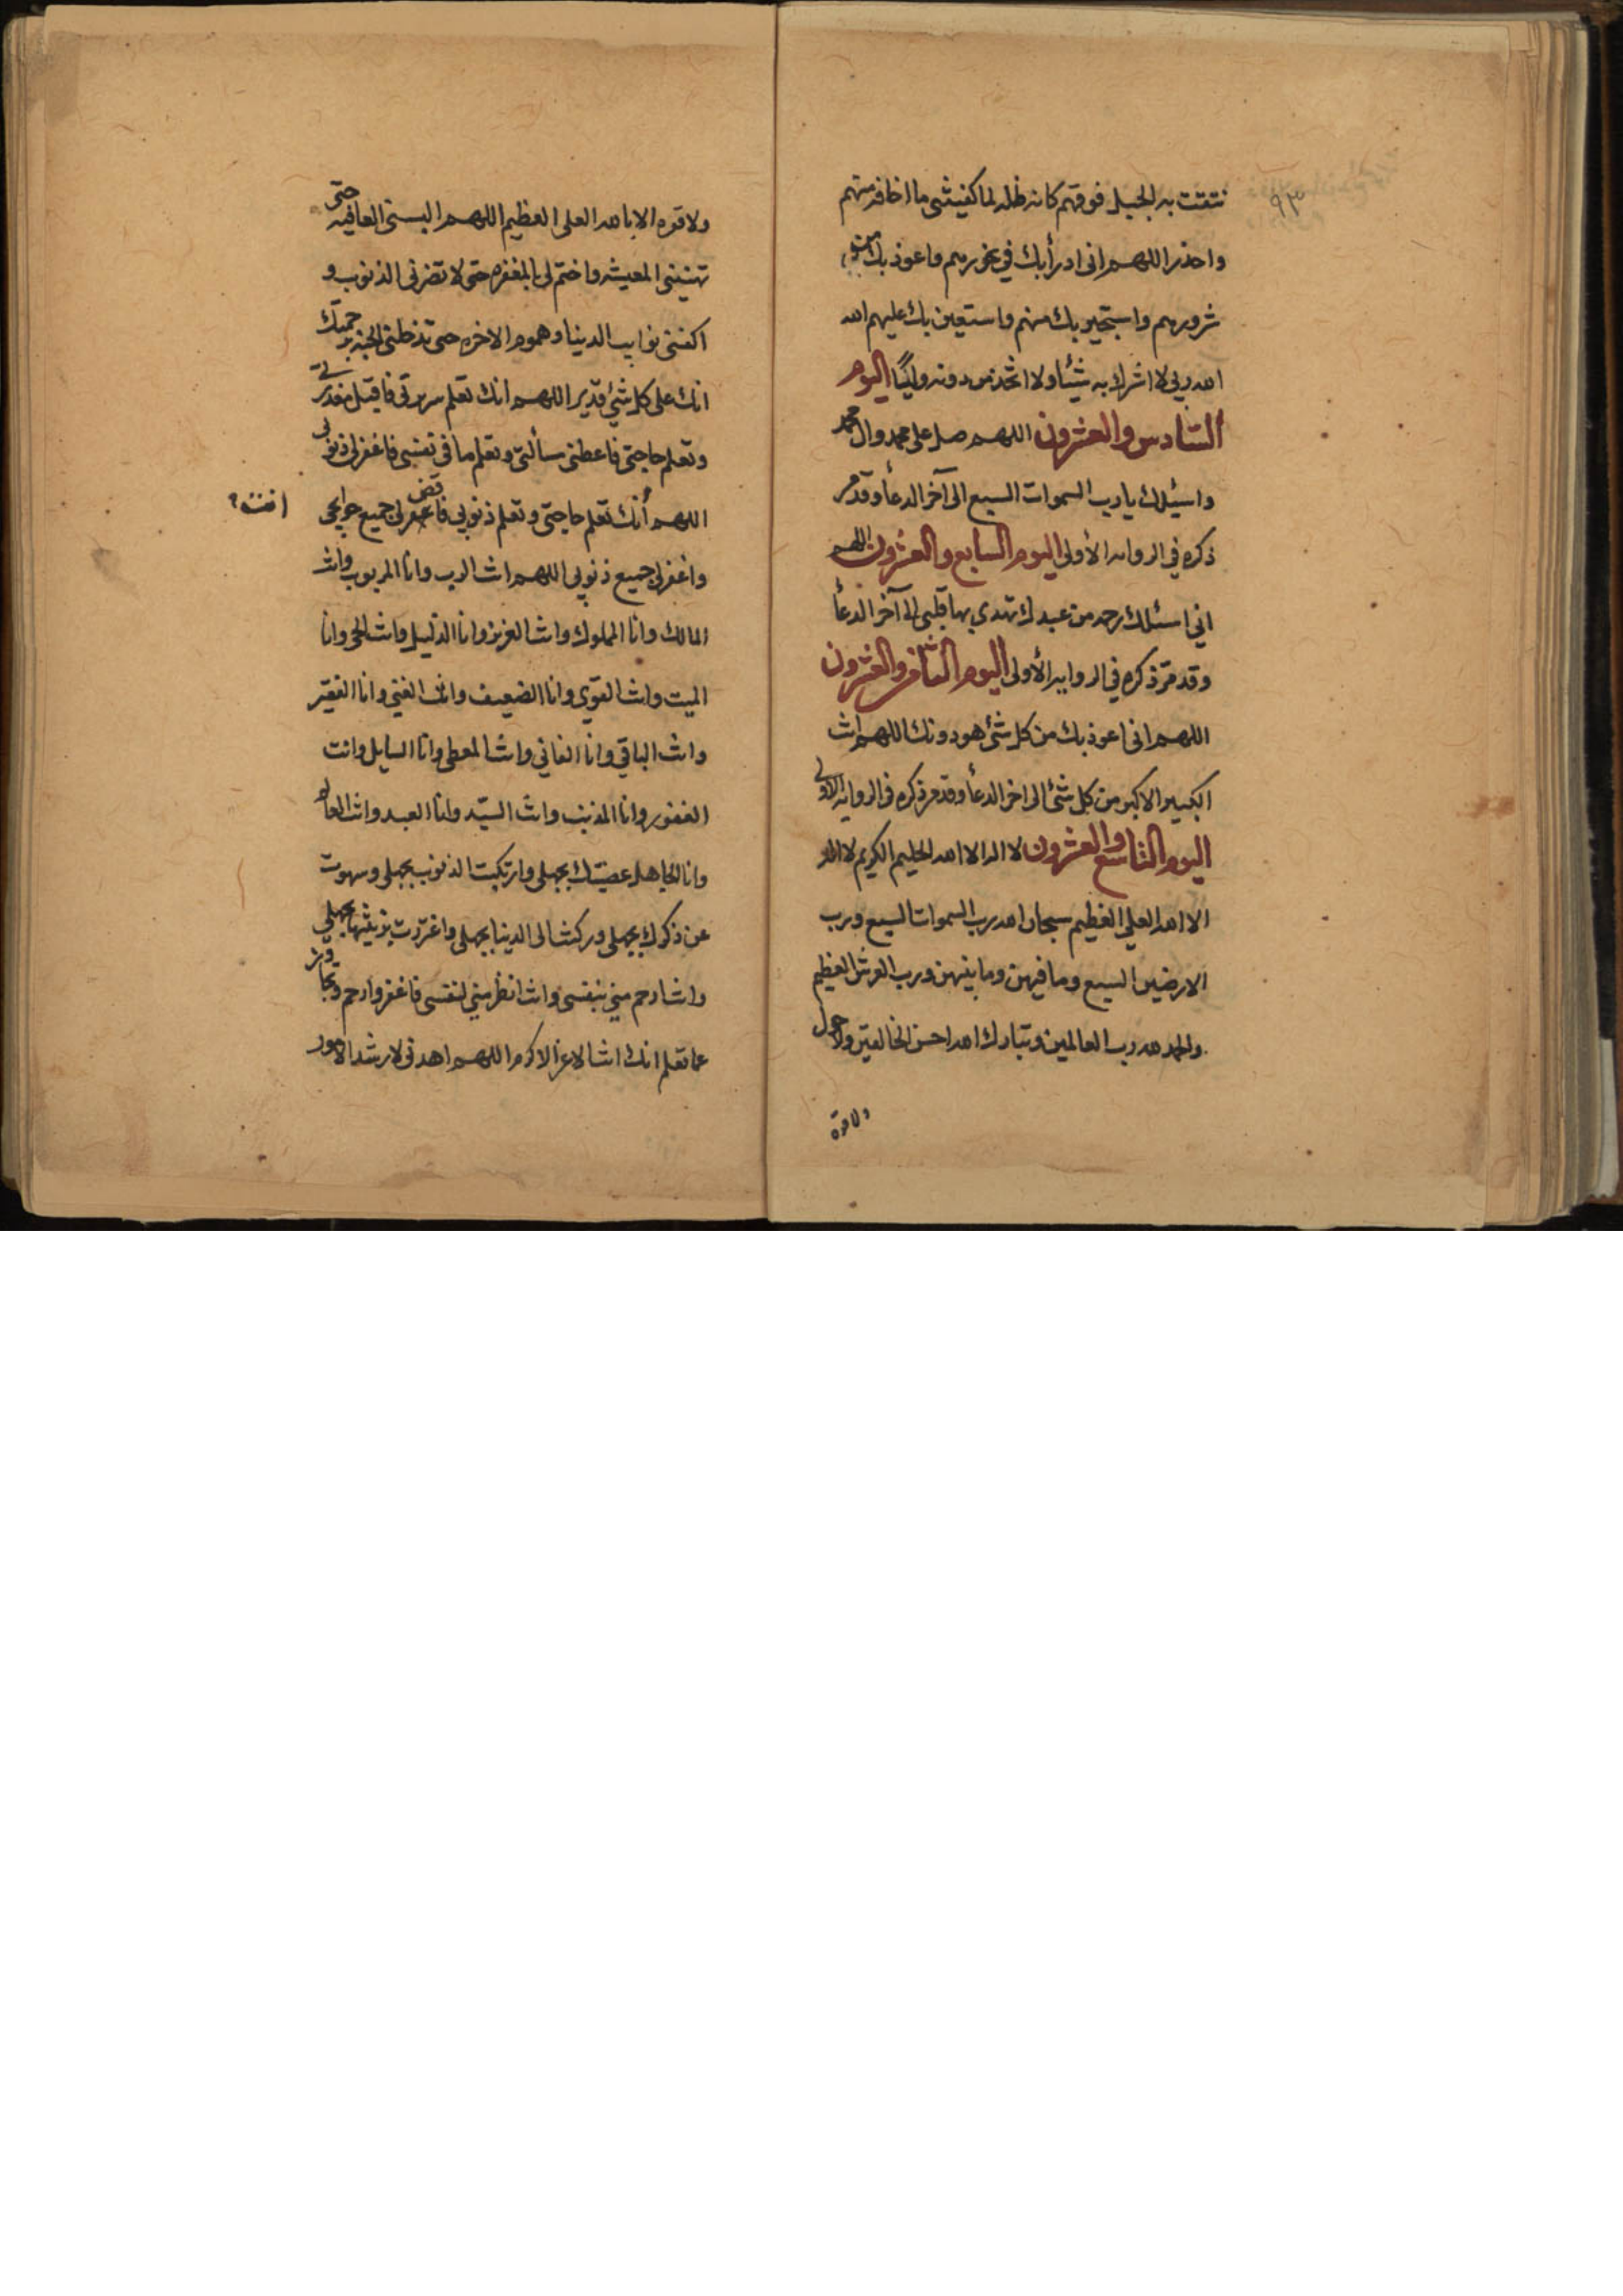 ٩٣
نتقت به الجبل فوقهم كانه ظله لما كفيتنى ما اخافه منهم
واحذر اللهم انى ادرأ بك في نحورهم واعوذ بك من
شرورهم واستجير بك منهم واستعين بك عليهم الله
الله ربى لا اشرك به شيئا ولا اتخذ من دونه وليًا اليوم
السّادس والعشرون اللهم صل على محمد وال محمد
واسئلك يا رب السموات السبع الى آخر الدعأ وقد مر
ذكره في الروايه الأولى اليوم السابع والعشرون اللهم
اني اسئلك رحمه من عبدك تهدي بها قلبى الى آخر الدعأ
وقد مرّ ذكره في الروايه الأولى اليوم الثامن والعشرون
اللهم انى اعوذ بك من كل شئ هو دونك اللهم انت
الكبير الاكبر من كل شئ الى اخر الدعأ وقد مر ذكره فى الروايه الاولى
اليوم التاسع والعشرون لا اله الا الله الحليم الكريم لا اله
الا الله العلي العظيم سبحان الله رب السموات السبع ورب
الارضين السبع وما فيهن وما بينهن ورب العرش العظيم
والحمد لله رب العالمين وتبارك الله احسن الخالقين ولا حول
ولا قوة
ولا قوه الا بالله العلى العظيم اللهم البسنى العافيه حتى
تهنينى المعيشه واختم لى بالمغفره حتى لا تضرنى الذنوب و
اكفنى نوايب الدنيا وهموم الاخره حتى تدخلنى الجنه برحمتك
انك على كل شئ قدير اللهم انك تعلم سريرتى فاقبل معذرتى
وتعلم حاجتى فاعطنى سألتى وتعلم ما فى نفسى فاغفر لى ذنوبى
اللهم أنك تعلم حاجتى وتعلم ذنوبى فاقض لى جميع حوايجى
واغفر لى جميع ذنوبى اللهم انت الرب وانا المربوب وانت
المالك وانا المملوك وانت العزيز وانا الذليل وانت الحى وانا
الميت وانت القوي وانا الضعيف وانت الغني وانا الفقير
وانت الباقي وانا الفاني وانت المعطى وانا السايل وانت
الغفور وانا المذنب وانت السيّد وانا العبد وانت العالم
وانا الجاهل عصيتك بجهلى وارتكبت الذنوب بجهلى وسهوت
عن ذكرك بجهلى وركنت الى الدنيا بجهلى واغتررت بزينتها بجهلي
وانت ارحم مني بنفسى وانت انظر مني لنفسى فاغفر وارحم وتجاوز
عما تعلم انك انت الاعز الاكرم اللهم اهدنى لارشد الامور